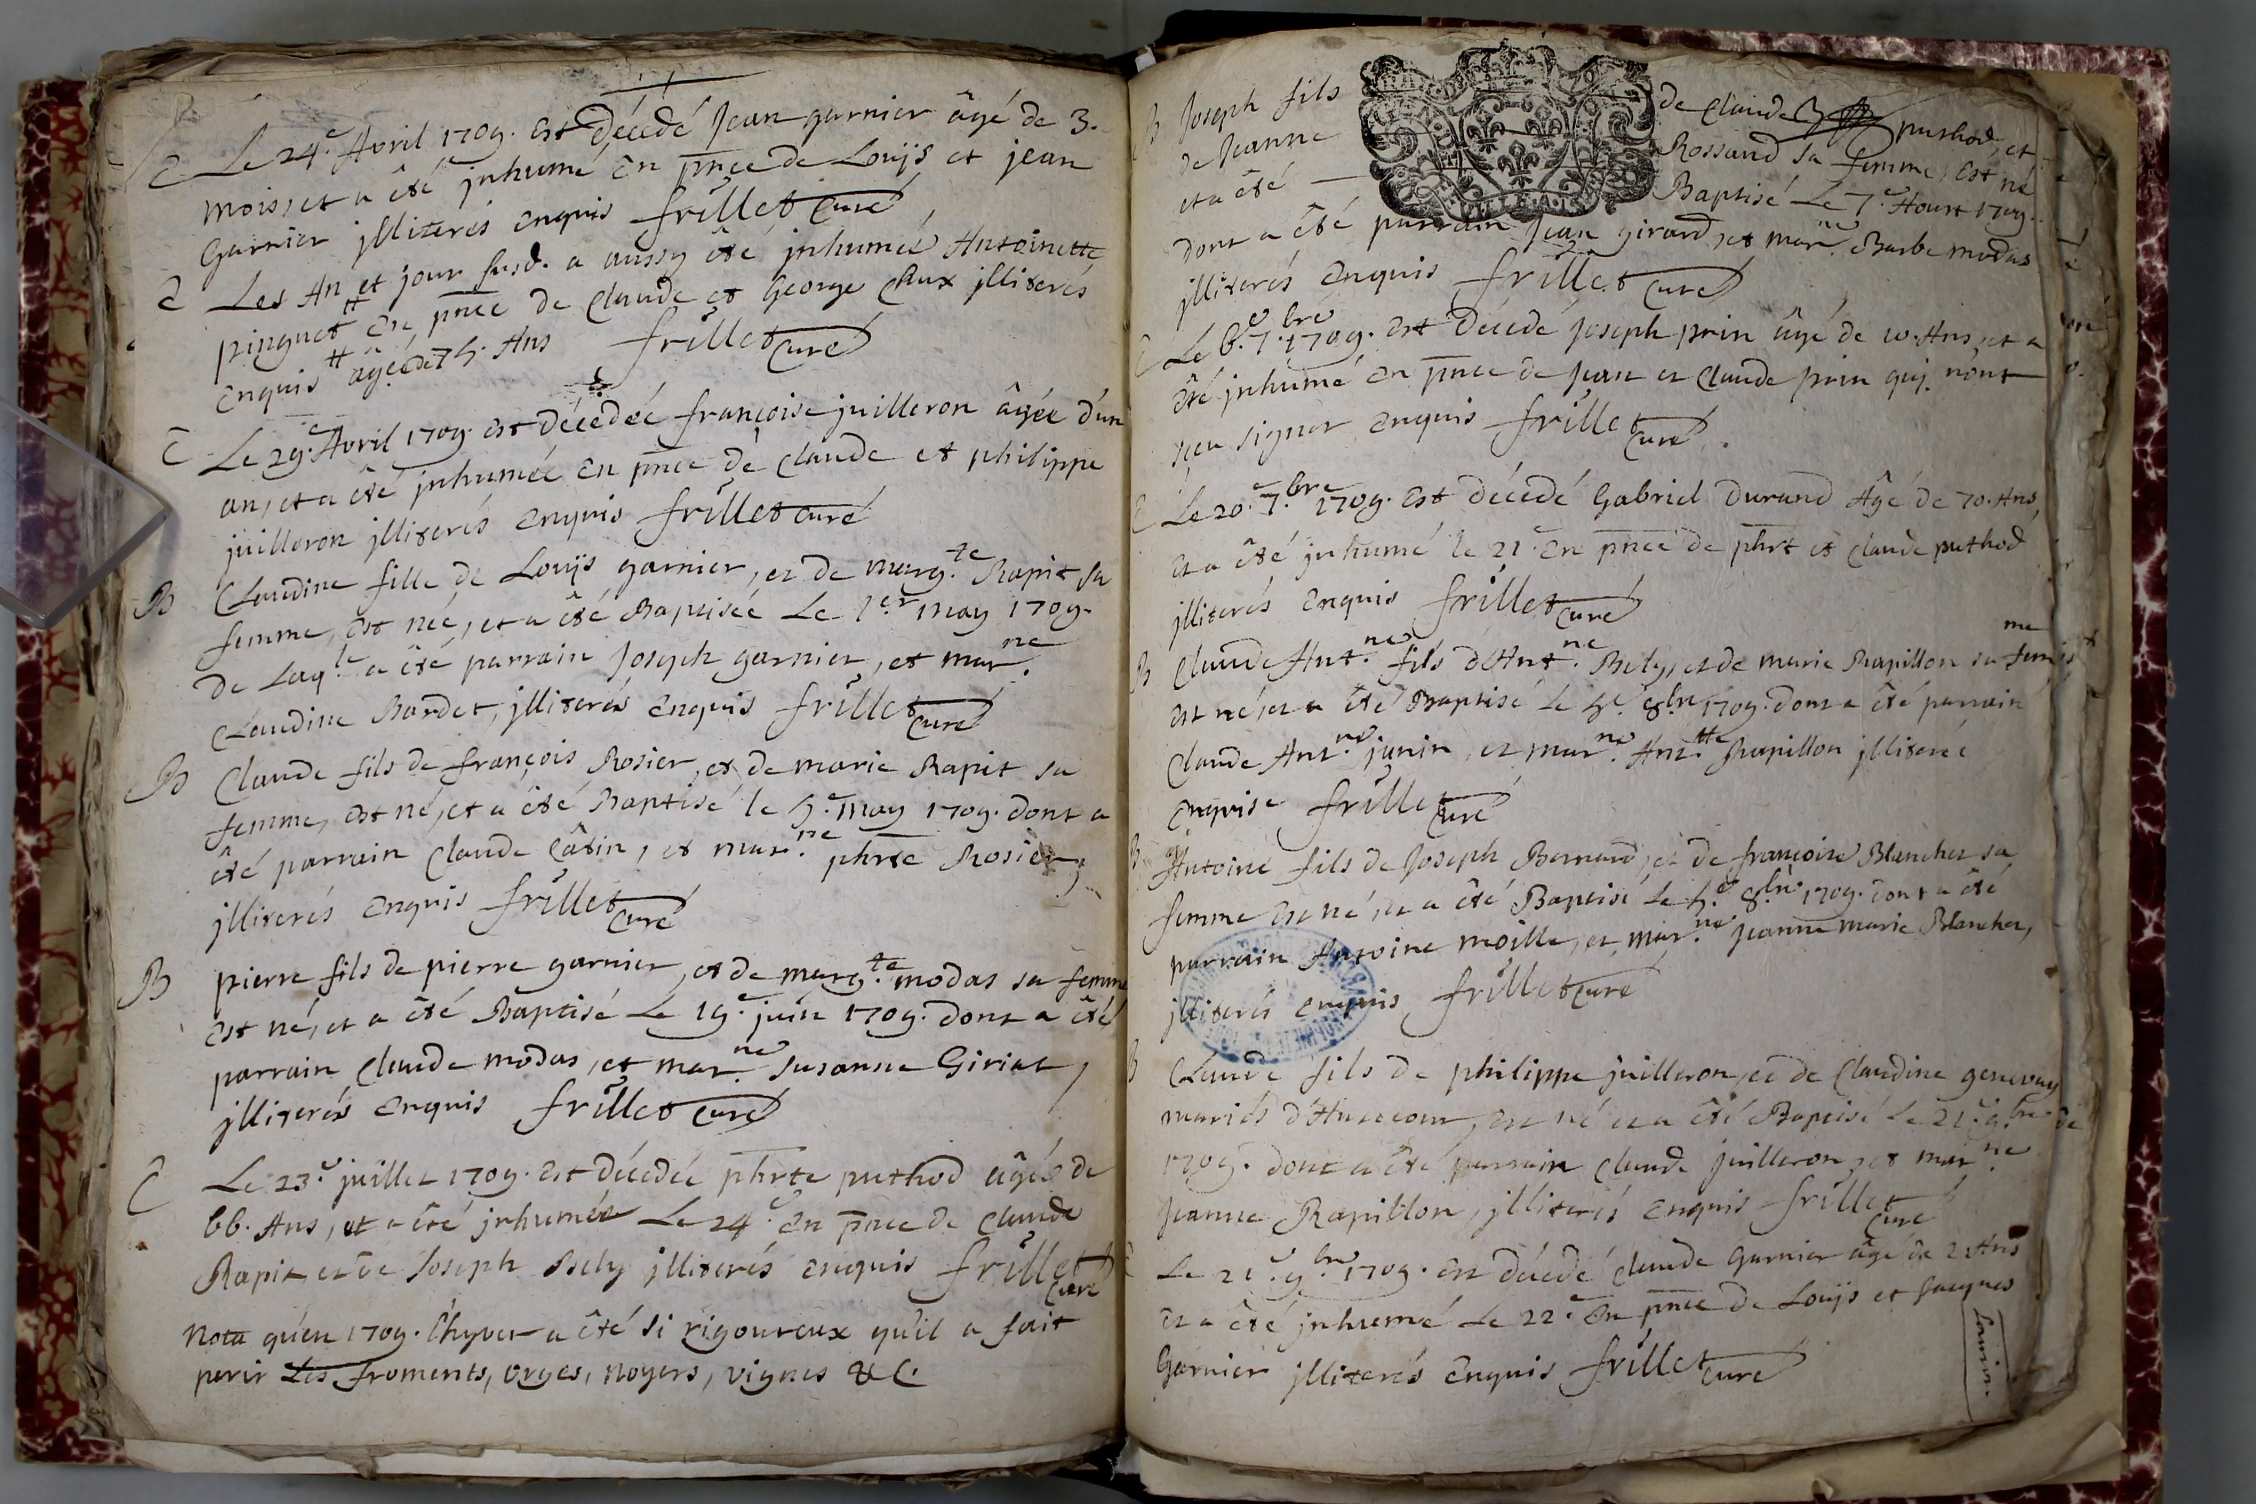 C Le 24.e Avril 1709. est décédé Jean garnier âgé de 3.
mois, et a êté jnhumé en pnce de Louijs et jean
Garnier jlliterés enquis frillet Curé
C Les An et jour susd. a aussy êté jnhumée Antoinette
pinguet # en pnce de Claude et George Claux jlliterés
enquis # âgée de 75. Ans frillet curé
C Le 29.e Avril 1709. est décédée françoise juilleron âgée d'un
an, et a êté jnhumée en pnce de Claude et philippe
juilleron jlliterés enquis frillet curé
B Claudine fille de Louijs garnier, et de marg.te Rapit sa
femme, est née, et a êté Baptisée Le 1.er may 1709.
de Laq.le a êté parrain Joseph garnier, et mar.ne
Claudine Bardet, jlliterés enquis frillet curé
B Claude fils de françois Rosier, et de marie Rapit sa
femme, est né, et a êté Baptisé le 5.e may 1709. dont a
êté parrain Claude Câtin, et mar.ne phrte Rosier,
jlliterés enquis frillet curé
B pierre fils de pierre garnier, et de marg.te modas sa femme
est né, et a êté Baptisé Le 19.e juin 1709. dont a êté
parrain Claude modas, et mar.ne Susanne Giriat,
jlliterés enquis frillet curé
C Le 23.e juillet 1709. est décédée phrte puthod âgée de
66. Ans, et a êté jnhumée Le 24.e en pnce de Claude
Rapit et de Joseph Bely jlliterés enquis frillet curé
Nota qu'en 1709. l'hyver a êté si rigoureux qu'il a fait
perir Les froments, orges, noyers, vignes &c.
B Joseph fils de Claude puthod, et
de Jeanne Rossand sa femme, est né
et a êté Baptisé Le 7.e Aoust 1709.
dont a êté parrain Jean girard, et mar.ne Barbe modas
jlliterés enquis frillet curé
C Le 6.e 7.bre 1709. est décédé Joseph prin âgé de 10. Ans, et a
êté jnhumé en pnce de Jean et Claude prin quj n'ont
sçeu signer enquis frillet curé.
C Le 20.e 7.bre 1709. est décédé Gabriel Durand âgé de 70. Ans,
et a êté jnhumé le 21.e en pnce de phrt et Claude puthod
jlliterés enquis frillet curé
B Claude Ant.ne fils d'Ant.ne Bely, et de marie Rapillon sa femme
est né, et a êté Baptisé Le 5.e 8.bre 1709. dont a êté parrain
Claude Ant.ne janin, et mar.ne Ant.tte Rapillon jlliterée
enquise frillet curé
B Antoine fils de Joseph Bernard, et de françoise Blanchet sa
femme est né, et a êté Baptisé Le 5.e 8.bre 1709. dont a êté
parrain Antoine moille, et mar.ne jeanne marie Blanchet,
jlliterés enquis frillet curé
B Claude fils de philippe juilleron, et de Claudine genevay
mariés est né et a êté Baptisé Le 21.e 9.bre de
1709. dont a êté parrain Claude juilleron, et mar.ne
Jeanne Rapillon, jlliterés enquis frillet curé
C Le 21.e 9.bre 1709. est décédé Claude Garnier âgé de 2 Ans
et a êté jnhumé Le 22.e en pnce de Louijs et Jacques
Garnier jlliterés enquis frillet curé